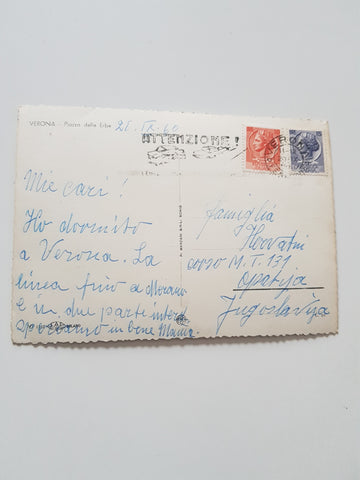 VERONA - Piazza delle Erbe
ATTENZIONE!
VERONA
Mie cari!
Ho dormito
a Verona. La
linea fino a
e in due parte
speriamo in bene Mama.
Famiglia
Horvatin
corso M. T. 131
Opatija
Jugoslavija